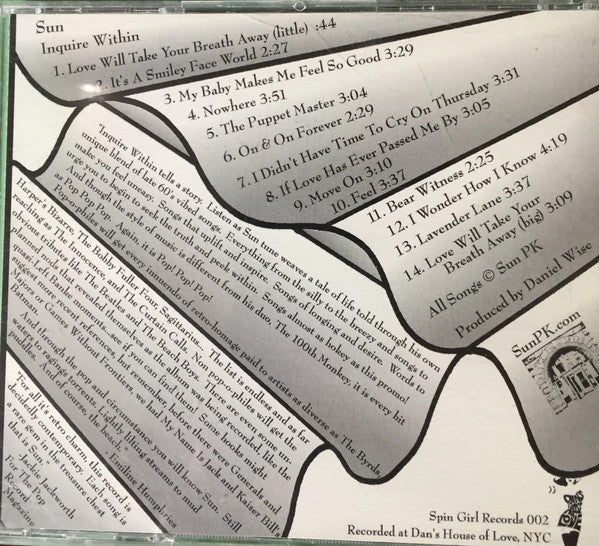 Sun
Inquire Within
1. Love Will Take Your Breath Away (little) :44
2. It's A Smiley Face World 2:27
3. My Baby Makes Me Feel So Good 3:29
4. Nowhere 3:51
5. The Puppet Master 3:04
6. On & On Forever 2:29
7. I Didn't Have Time To Cry On Thursday 3:31
8. If Love Has Ever Passed Me By 3:05
9. Move On 3:10
10. Feel 3:37
11. Bear Witness 2:25
12. I Wonder How I Know 4:19
13. Lavender Lane 3:37
14. Love Will Take Your
Breath Away (big) 3:09
All Songs © Sun PK
Produced by Daniel Wise
"Inquire Within tells a story. Listen as Sun tune weaves a tale of life told through his own
unique blend of late 60's vibed songs. Everything from the silly, to the breezy and songs to
make you feel uneasy. Songs that uplift and inspire. Songs of longing and desire. Words to
urge you to begin to seek the truth and peek within. Songs almost as hokey as this promo!
And though the style of music is different from his duo, The 100th Monkey, it is every bit
as Pop Pop Pop. Again, it is Pop! Pop! Pop!
Pop-o-philes will get every innuendo of retro-homage paid to artists as diverse as The Byrds,
Harper's Bizarre, The Bobby Fuller Four, Sagittarius... The list is endless and as far
reaching as The Innocency and The Curtain Calls. Non pop-o-philes will get the
obvious tributes like The Beatles and The Beach Boys. There are even some un-
planned nods that revealed themselves as the album was being recorded, like the
quasi Left Banke moments...see if you can find them! Some hooks might
suggest more recent references, but remember, before there were Generals and
Majors or Games Without Frontiers, we had My Name Is Jack and Kaiser Bill's
Batman.
And through the pop and circumstance you will know Sun. Still
waters to ragings torrents. Lightly lilting streams to mud
puddles. And of course, the beach."
- Emiline Humphries
"For all it's retro charm, this record is
decidedly contemporary. Each song is
a rare gem in the treasure chest
that is Sun."
- Jackie Jackworth
For The Pop
Record
Magazine
SunPK.com
Spin Girl Records 002
Recorded at Dan's House of Love, NYC